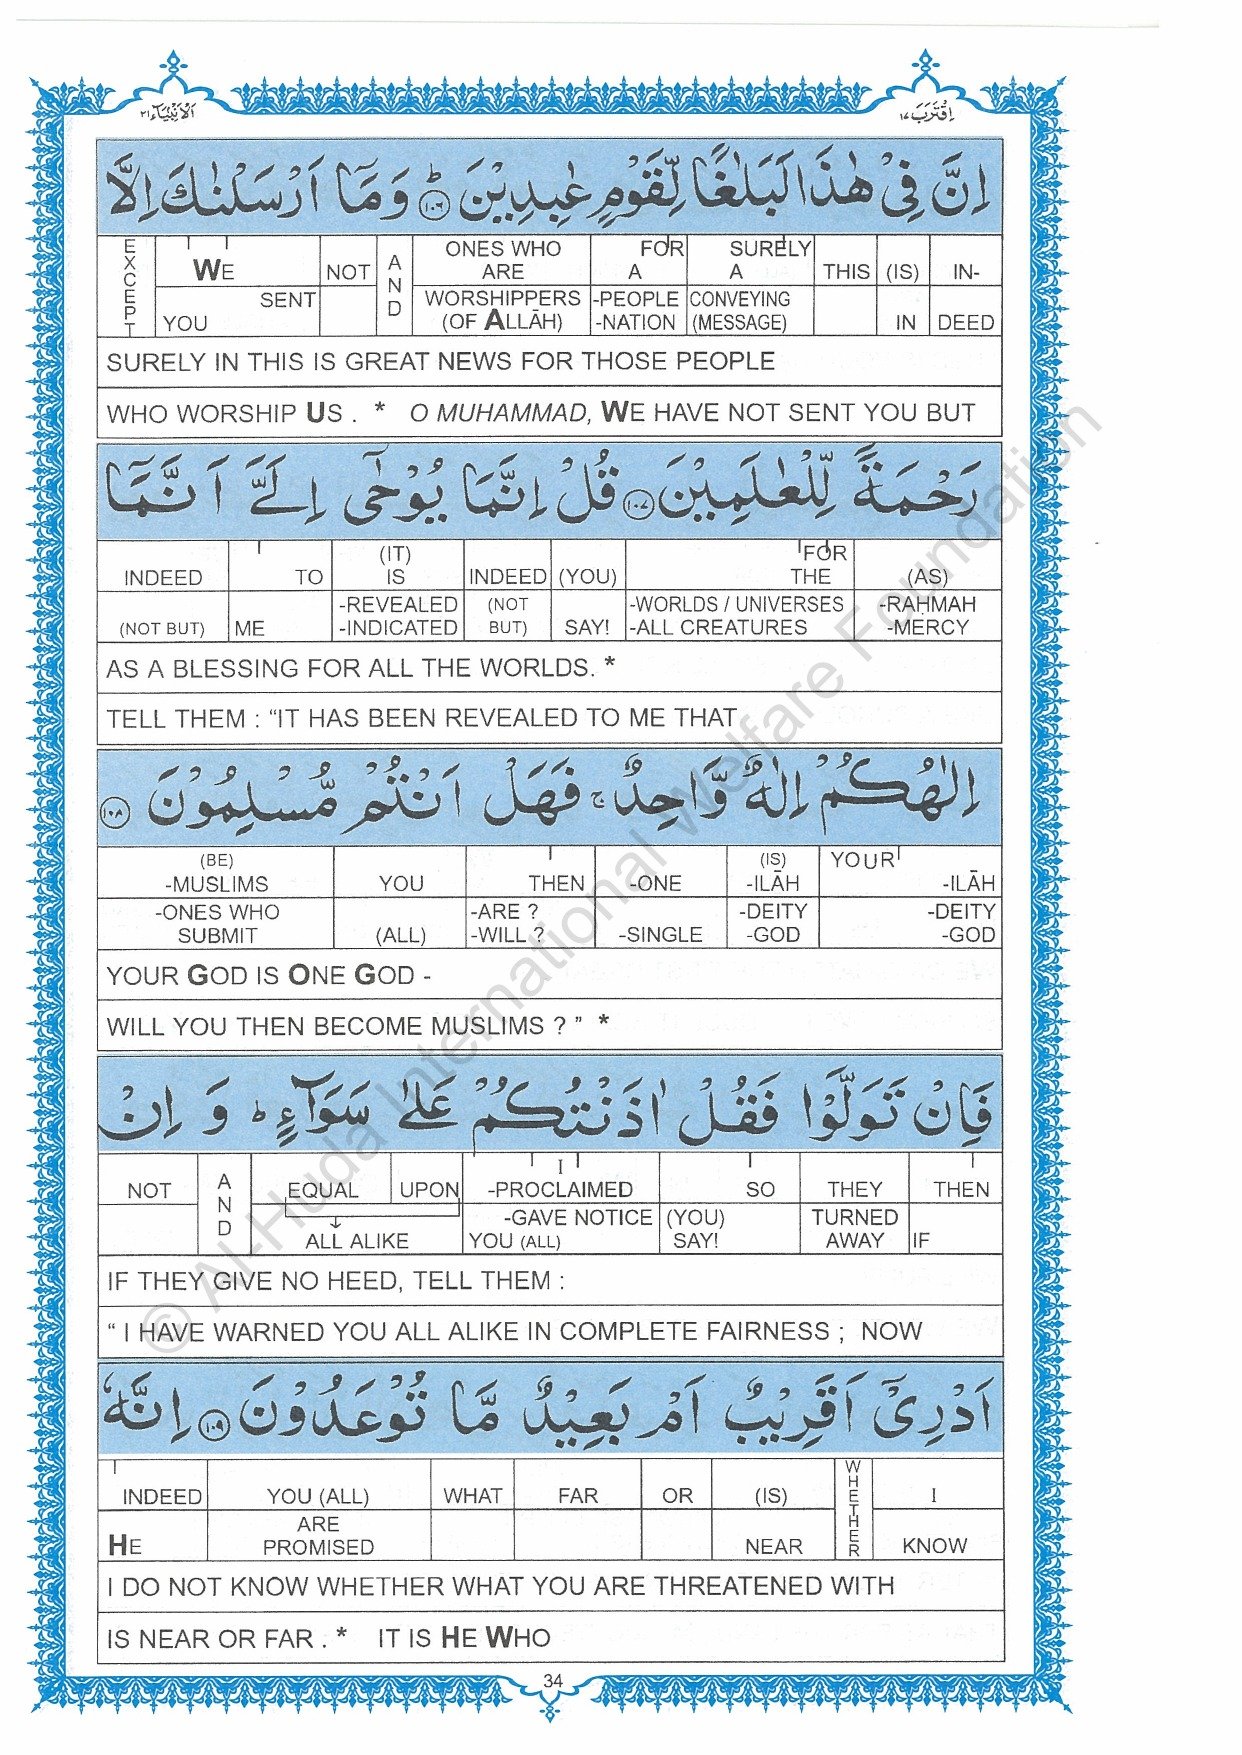 اِقْتَرَبَ ١٧
اَلْاَنْۢبِيَآء ٢١
اِنَّ فِيْ هٰذَا لَبَلٰغًا لِّقَوْمٍ عٰبِدِيْنَ ؕ ١٠٦ وَ مَاۤ اَرْسَلْنٰكَ اِلَّا
EXCEPT WE NOT AND ONES WHO ARE FOR A SURELY A THIS (IS) IN-
YOU SENT WORSHIPPERS (OF ALLĀH) -PEOPLE -NATION CONVEYING (MESSAGE) IN DEED
SURELY IN THIS IS GREAT NEWS FOR THOSE PEOPLE
WHO WORSHIP US . * O MUHAMMAD, WE HAVE NOT SENT YOU BUT
رَحْمَةً لِّلْعٰلَمِيْنَ ١٠٧ قُلْ اِنَّمَا يُوْحٰۤى اِلَيَّ اَنَّمَاۤ
INDEED TO (IT) IS INDEED (YOU) FOR THE (AS)
(NOT BUT) ME -REVEALED -INDICATED (NOT BUT) SAY! -WORLDS / UNIVERSES -ALL CREATURES -RAHMAH -MERCY
AS A BLESSING FOR ALL THE WORLDS. *
TELL THEM : “IT HAS BEEN REVEALED TO ME THAT
اِلٰهُكُمْ اِلٰهٌ وَّاحِدٌ ۚ فَهَلْ اَنْتُمْ مُّسْلِمُوْنَ ١٠٨
(BE) -MUSLIMS YOU THEN -ONE (IS) -ILĀH YOUR -ILĀH
-ONES WHO SUBMIT (ALL) -ARE ? -WILL ? -SINGLE -DEITY -GOD -DEITY -GOD
YOUR GOD IS ONE GOD -
WILL YOU THEN BECOME MUSLIMS ? ” *
فَاِنْ تَوَلَّوْا فَقُلْ اٰذَنْتُكُمْ عَلٰى سَوَآءٍ ؕ وَ اِنْ
NOT AND EQUAL UPON I -PROCLAIMED SO THEY THEN
ALL ALIKE -GAVE NOTICE YOU (ALL) (YOU) SAY! TURNED AWAY IF
IF THEY GIVE NO HEED, TELL THEM :
“ I HAVE WARNED YOU ALL ALIKE IN COMPLETE FAIRNESS ; NOW
اَدْرِيْۤ اَقَرِيْبٌ اَمْ بَعِيْدٌ مَّا تُوْعَدُوْنَ ١٠٩ اِنَّهٗ
INDEED YOU (ALL) WHAT FAR OR (IS) WHETHER I
HE ARE PROMISED NEAR KNOW
I DO NOT KNOW WHETHER WHAT YOU ARE THREATENED WITH
IS NEAR OR FAR . * IT IS HE WHO
34
© Al-Huda International Welfare Foundation